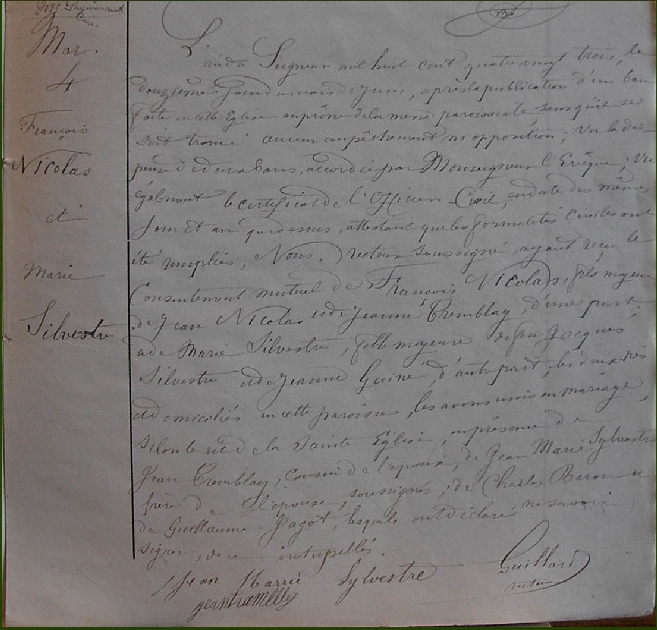 Mar.
4
François
Nicolas
et
Marie
Silvestre
L'an du Seigneur mil huit cent quatre vingt trois, le
douzième jour du mois de Juin, après la publication d'un ban
faite en cette Eglise au prône de la messe paroissiale sans qu'il se
soit trouvé aucun empêchement ni opposition; Vu la dis-
pense de deux bans, accordée par Monseigneur l'Evêque; Vu
également le certificat de l'Officier Civil, en date des mêmes
jour et an que dessus, attestant que les formalités civiles ont
été remplies; Nous, recteur soussigné, ayant reçu le
Consentement mutuel de François Nicolas, fils majeur
de Jean Nicolas et de Jeanne Tremblay, d'une part,
et de Marie Silvestre, fille majeure de feu Jacques
Silvestre et de Jeanne Guiné, d'autre part, les deux
domiciliés en cette paroisse, les avons unis en mariage,
selon le rit de la Sainte Eglise, en présence de
Jean Tremblay, cousin de l'époux, de Jean Marie Sylvestre
frère de l'épouse, soussignés; de Charles Baron et
de Guillaume Jagot, lesquels ont déclaré ne savoir
signer, de ce interpellés.
Jean Marrie Sylvestre Guillard
recteur
jean tramblly